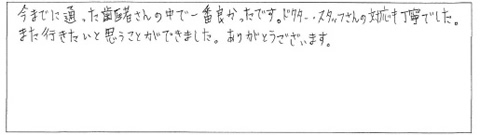 今までに通った歯医者さんの中で一番良かったです。ドクター・スタッフさんの対応も丁寧でした。
また行きたいと思うことができました。ありがとうございます。